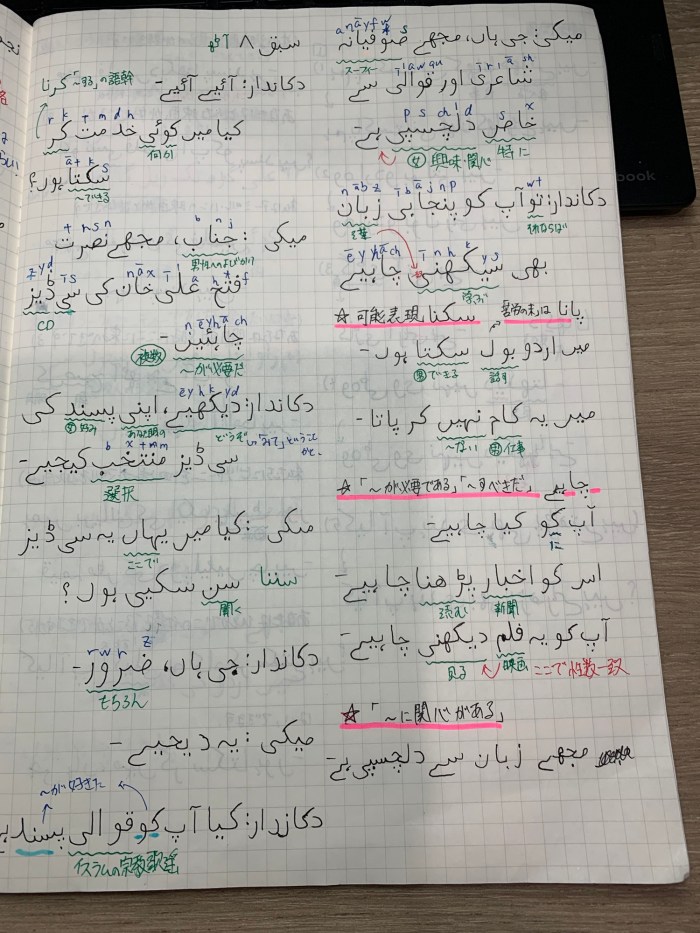 سبق ۸ p61
دکاندار: آئیے آئیے-
کرنا 「~する」の語幹
کیا میں کوئی خدمت کر
何か
سکتا ہوں؟
~できる
میکی: جناب، مجھے نصرت
男性へのよびかけ
فتح علی خان کی سی ڈیز
CD
چاہئیں-
複数 ~が必要だ
دکاندار: دیکھیے، اپنی پسند کی
女 好み
سی ڈیز منتخب کیجیے-
選択
میکی: کیا میں یہاں یہ سی ڈیز
ここで
سن سکتی ہوں؟ سننا
聞く
دکاندار: جی ہاں، ضرور-
もちろん
میکی: یہ دیجیے-
~が好きだ
دکاندار: کیا آپ کو قوالی پسند
イスラムの宗教歌謡
میکی: جی ہاں، مجھے صوفیانہ
スーフィー
شاعری اور قوالی سے
خاص دلچسپی ہے-
女 興味・関心 特に
دکاندار: تو آپ کو پنجابی زبان
言葉 それならば
بھی سیکھنی چاہیے
学ぶ
☆ 可能表現 سکنا پانا
میں اردو بول سکتا ہوں-
男 できる 話す
میں یہ کام نہیں کر پاتا-
~ない 男 仕事
☆ 「~が必要である」「~すべきだ」 چاہیے
آپ کو کیا چاہیے-
に
اس کو اخبار پڑھنا چاہیے-
読む 新聞
آپ کو یہ فلم دیکھنی چاہیے-
見る 映画 ここで性数一致
☆ 「~に関心がある」
مجھے زبان سے دلچسپی ہے-